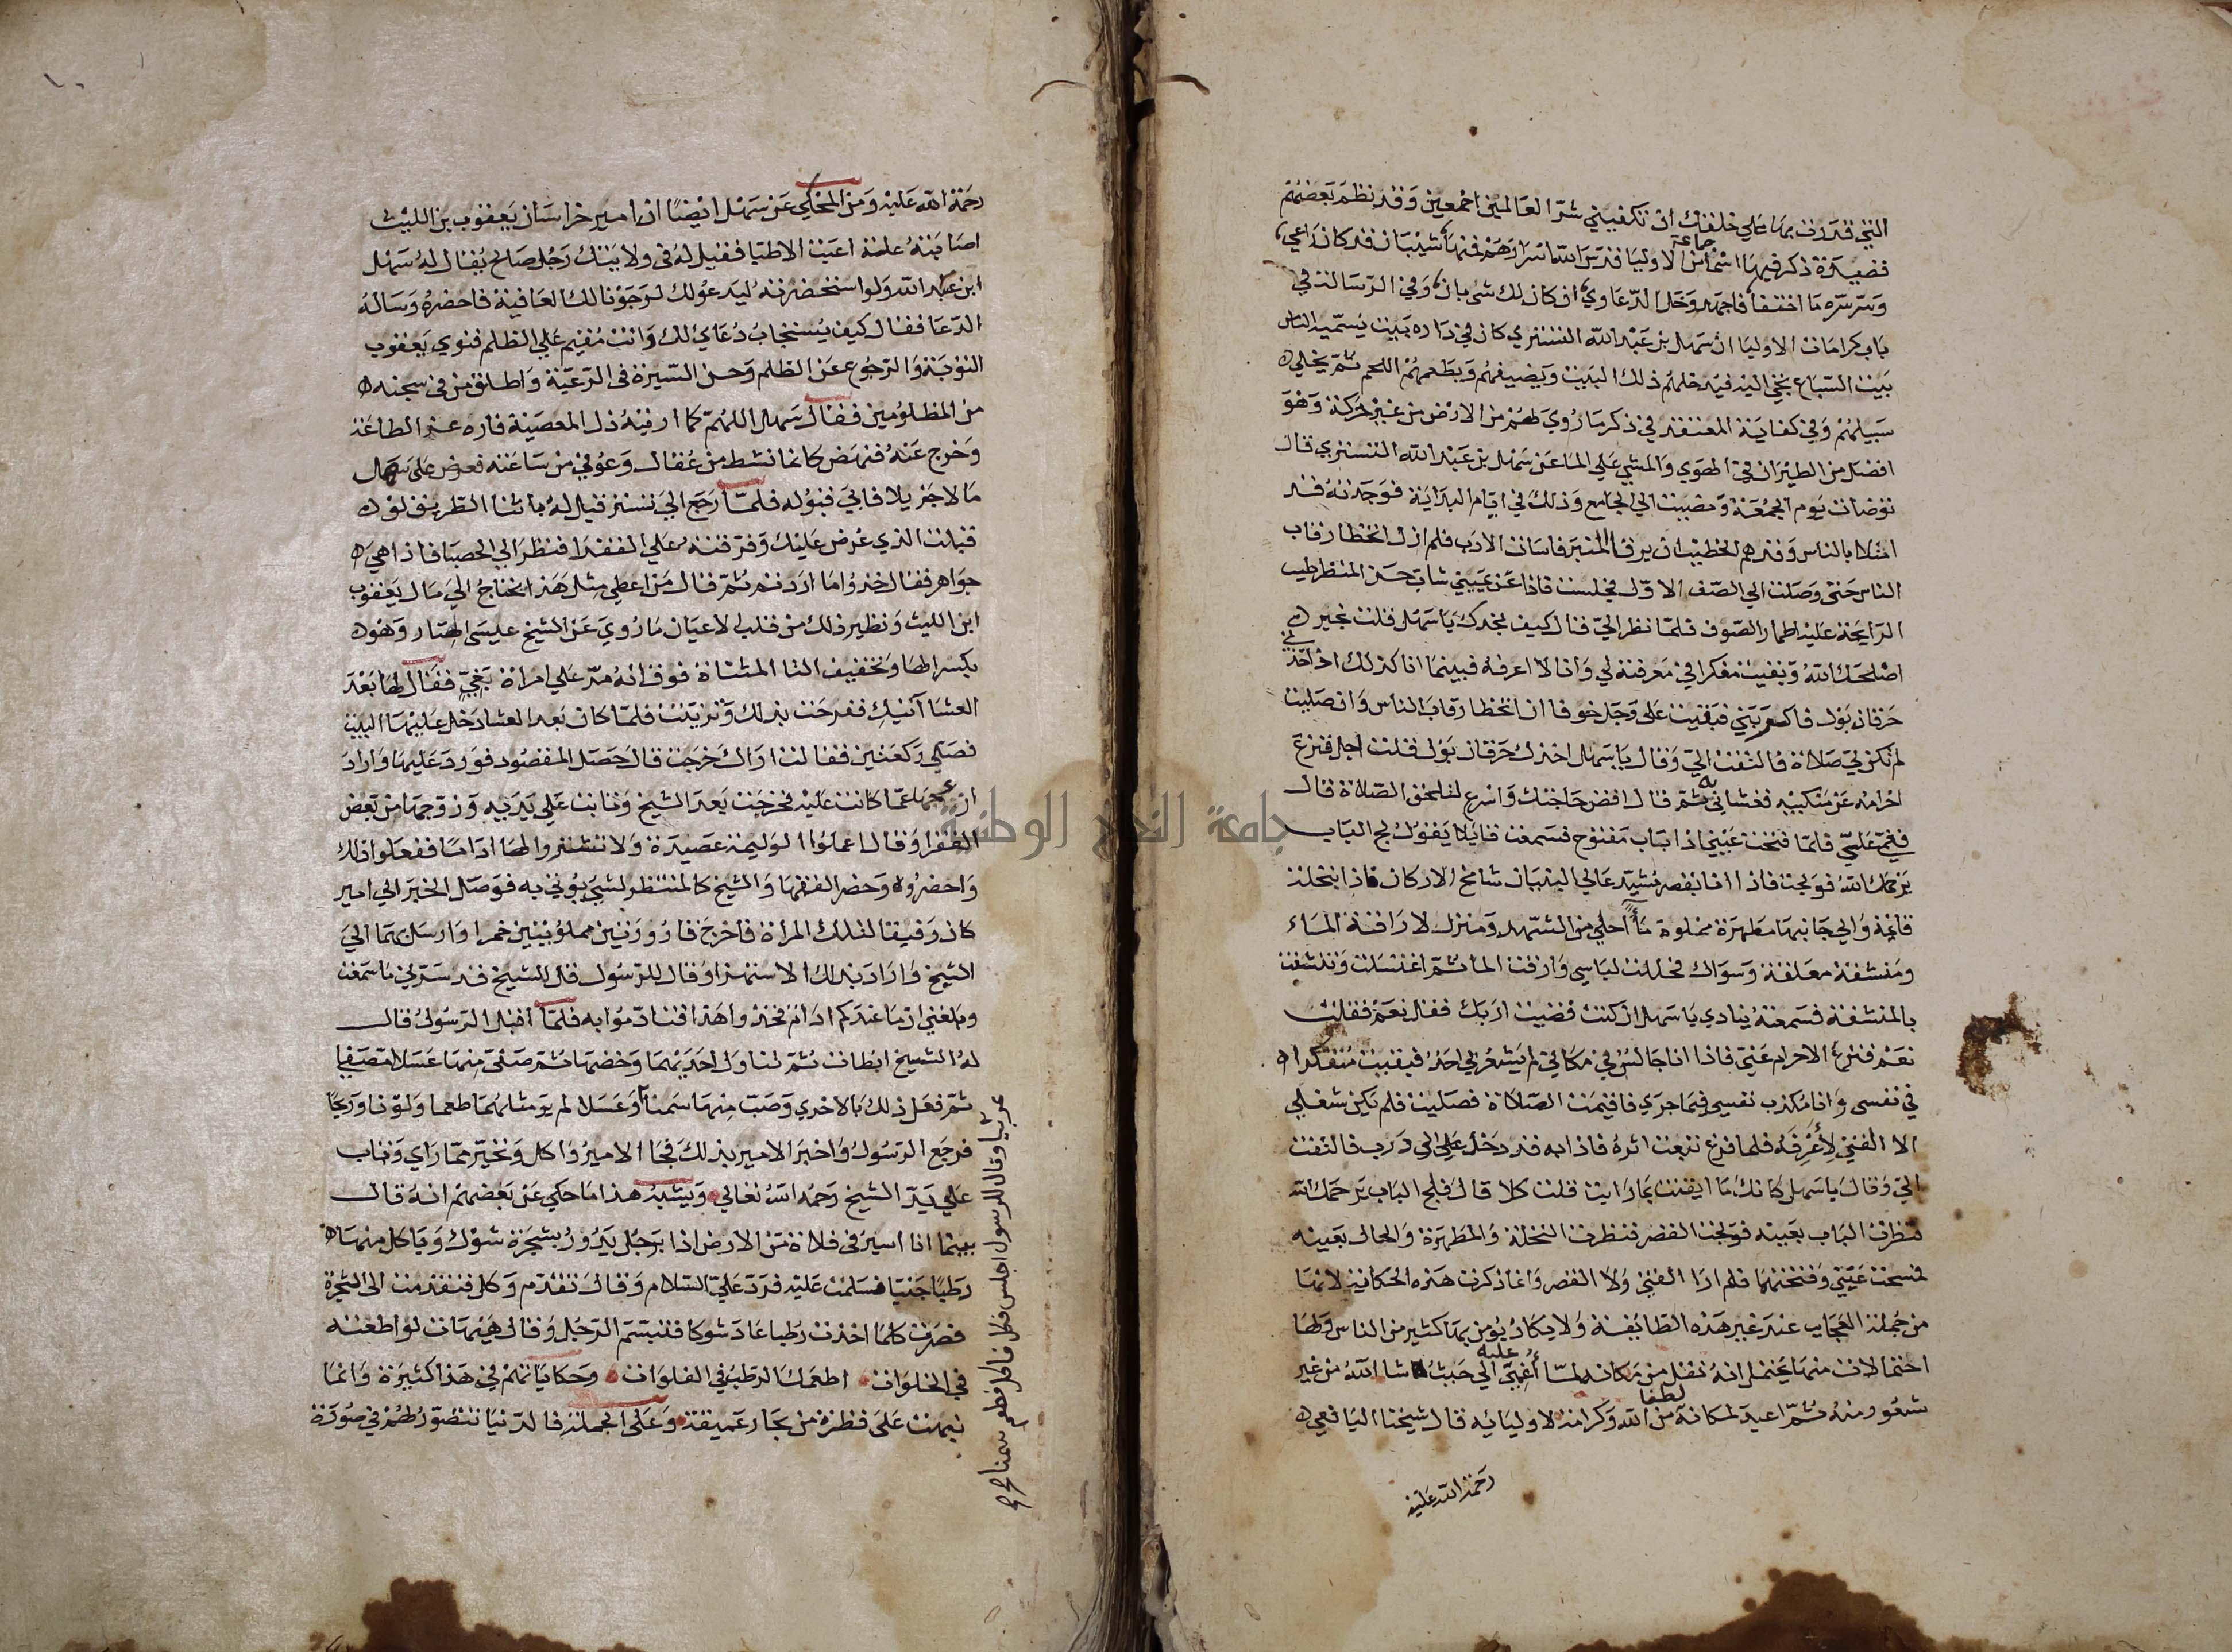 التي قدرت بها على خلقك ان تكفيني شر العالمين اجمعين وقد نظم بعضهم
قصيدة ذكر فيها اسماء جماعة من الاوليا قدس الله اسرارهم فمنها شيبان قد كان راعي
وسرسره ما اختفا فاجهد وخل الدعاوي ان كان لك شي بان وفي الرسالة في
باب كرامات الاوليا ان سهل بن عبد الله التستري كان في داره بيت يسميه الناس
بيت السباع تجي اليه فيدخلهم ذلك البيت ويضيفهم ويطعمهم اللحم ثم يخلي
سبيلهم وفي كفاية المعتقد في ذكر ما روي لهم من الارض من غير حركة وهو
افضل من الطيران في الهوي والمشي علي الما عن سهل بن عبد الله التستري قال
توضات يوم الجمعة ومضيت الي الجامع وذلك في ايام البداية فوجدته قد
امتلا بالناس وقد هم الخطيب ان يرقا المنبر فاسات الادب فلم ازل اتخطا رقاب
الناس حتى وصلت الي الصف الاول فجلست فاذا عن يميني شاب حسن المنظر طيب
الرايحة عليه اطمار الصوف فلما نظر الي قال كيف تجدك يا سهل قلت بخير
اصلحك الله وبقيت مفكرا في معرفته لي وانا لا اعرفه فبينما انا كذلك اذ اخذني
حرقان بول فاكربني فبقيت على وجل خوفا ان اتخطا رقاب الناس وان صليت
لم تكن لي صلاة فالتفت الي وقال يا سهل اخذك حرقان بول قلت اجل فنزع
احرامه عن منكبيه فغشاني به ثم قال اقض حاجتك واسرع لتلحق الصلاة قال
فغمي علي فلما فتحت عيني اذا باب مفتوح فسمعت قايلا يقول لج الباب
يرحمك الله فولجت فاذا انا بقصر مشيد عالي البنيان شامخ الاركان فاذا بنخلة
قايمة والي جانبها مطهرة مملوة ماء احلي من الشهد ومنزل لاراقة الماء
ومنشفة معلقة وسواك فحللت لباسي وارقت الما ثم اغتسلت وتنشفت
بالمنشفة فسمعته ينادي يا سهل ان كنت قضيت اربك فقال نعم فقلت
نعم فنزع الاحرام عني فاذا انا جالس في مكاني لم يشعر بي احد فبقيت متفكرا
في نفسي وانا مكذب نفسي فيما جري فاقيمت الصلاة فصليت فلم تكن شغلي
الا الفتي لأعرفه فلما فرغ تتبعت اثره فاذا به قد دخل علي الى درب فالتفت
الي وقال يا سهل كانك ما ايقنت بما رايت قلت كلا قال فلج الباب يرحمك الله
فنظرت الباب بعينه فولجت القصر فنظرت النخلة والمطهرة والحال بعينه
فمسحت عيني وفتحتهما فلم ارا الفتي ولا القصر وانما ذكرت هذه الحكاية لانها
من جملة العجايب عند غير هذه الطايفة ولا يكاد يومن بها كثير من الناس ولها
احتمالات منها يحتمل انه نقل من مكانه لما اغمي عليه الي حيث شا الله من غير
شعور منه ثم اعيد لمكانه لطفا من الله وكرامة لاوليايه قال شيخنا اليافعي
رحمة الله عليه
رحمة الله عليه ومن المحكي عن سهل ايضا ان امير خراسان يعقوب بن الليث
اصابته علة اعيت الاطبا فقيل له في ولايتك رجل صالح يقال له سهل
ابن عبد الله ولو استحضرته ليدعو لك لرجونا لك العافية فاحضره وساله
الدعا فقال كيف يستجاب دعاي لك وانت مقيم علي الظلم فنوي يعقوب
التوبة والرجوع عن الظلم وحسن السيرة في الرعية واطلق من في سجنه
من المظلومين فقال سهل اللهم كما اريته ذل المعصية فاره عز الطاعة
وخرج عنه فنهض كانما نشط من عقال وعوفي من ساعته فعرض على سهل
مالا جزيلا فابي قبوله فلما رجع الي تستر قيل له باثنا الطريق لو
قبلت الذي عرض عليك وفرقته علي الفقرا فنظر الي الحصبا فاذا هي
جواهر فقال خذوا ما اردتم ثم قال من اعطي مثل هذا يحتاج الي مال يعقوب
ابن الليث ونظير ذلك من قلب الاعيان ما روي عن الشيخ عيسى الهتار وهو
بكسر الها وتخفيف التا المثناة فوق انه مر علي امراة بغي فقال لها بعد
العشا آتيك ففرحت بذلك وتزينت فلما كان بعد العشا دخل عليها البيت
فصلي ركعتين فقالت اراك خرجت قال حصل المقصود فورد عليها وارد
ازعجها عما كانت عليه فخرجت بعد الشيخ وتابت علي يديه وزوجها من بعض
الفقرا وقال اعملوا الوليمة عصيدة ولا تشتروا لها اداما ففعلوا ذلك
واحضروه وحضر الفقها والشيخ كالمنتظر لشي يوتي به فوصل الخبر الي امير
كان رفيقا لتلك المراة فاخرج قارورتين مملوتين خمرا وارسل بهما الي
الشيخ واراد بذلك الاستهزا وقال للرسول قل للشيخ قد سرني ما سمعت
وبلغني ان ما عندكم ادام فخذوا هذا فتادموا به فلما اقبل الرسول قال
له الشيخ ابطات ثم تناول احديهما وخضها ثم صب منها عسلا مصفي
ثم فعل ذلك بالاخري وصب منها سمنا وعسلا لم يو مثلهما طعما ولونا وريحا
فرجع الرسول واخبر الامير بذلك فجا الامير واكل وتحير مما راي وتاب
علي يد الشيخ رحمه الله تعالي ويشبه هذا ما حكي عن بعضهم انه قال
بينما انا اسير في فلاة من الارض اذا برجل يدور بشجرة شوك وياكل منها
رطبا جنيا فسلمت عليه فرد علي السلام وقال تقدم وكل فتقدمت الى الشجرة
فصرت كلما اخذت رطبا عاد شوكا فتبسم الرجل وقال هيهات لو اطعته
في الخلوات اطعمك الرطب في الفلوات وحكاياتهم في هذا كثيرة وانما
نبهت على قطرة من بحار عميقة وعلى الجملة فالدنيا تتصور لهم في صورة
وقال للرسول اجلس فكل